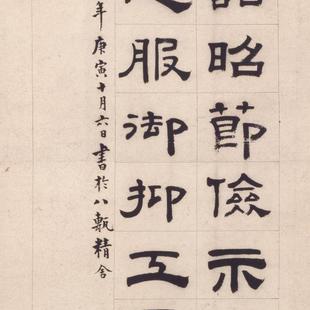 昭節儉示
服御抑工
年庚寅十月六日書於八甎精舍